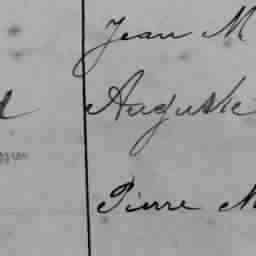 Jean M
Auguste
Pierre M